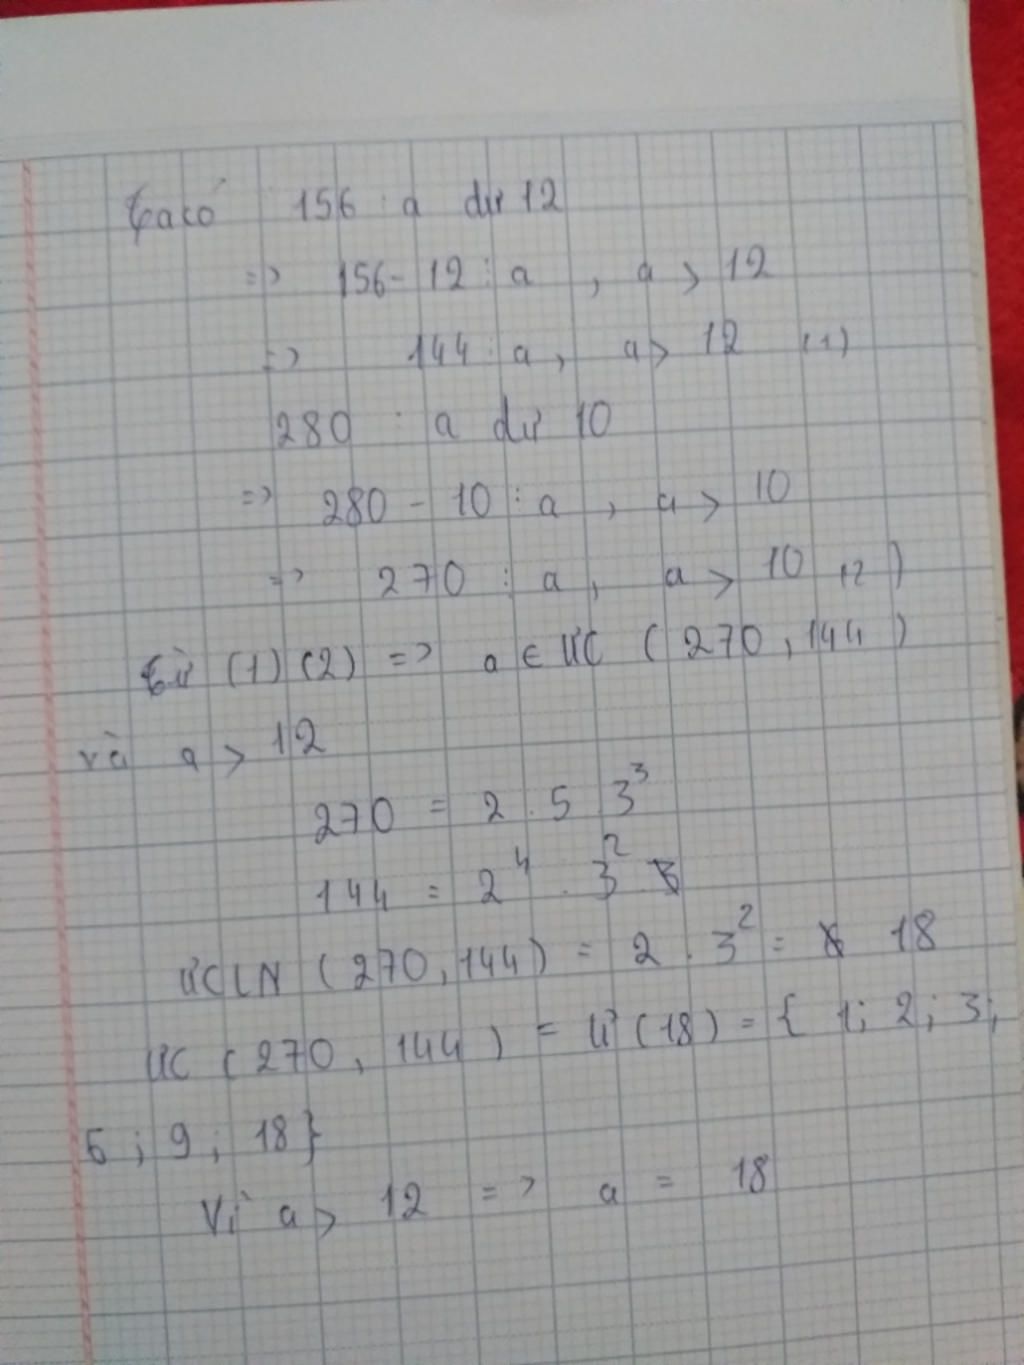 Ta có 156 : a dư 12
=> 156 - 12 ⋮ a , a > 12
=> 144 ⋮ a , a > 12 (1)
280 : a dư 10
=> 280 - 10 ⋮ a , a > 10
=> 270 ⋮ a , a > 10 (2)
Từ (1) (2) => a ∈ ƯC ( 270 , 144 )
và a > 12
270 = 2 . 5 3³
144 = 2⁴ . 3²
ƯCLN ( 270, 144 ) = 2 . 3² = 18
ƯC ( 270 , 144 ) = Ư ( 18 ) = { 1; 2 ; 3;
6 ; 9 ; 18 }
Vì a > 12 => a = 18